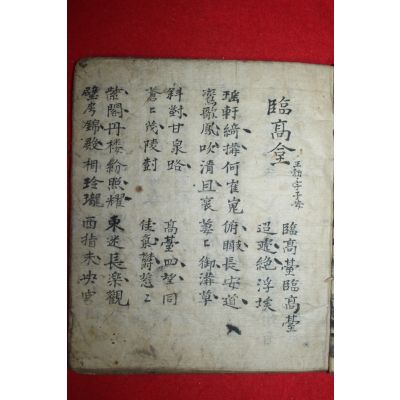 臨髙臺
王勃字子安
臨髙臺臨髙臺
迢遞絶浮埃
瑶軒綺構何崔嵬 俯瞰長安道
鸞歌鳳吹清且哀 萋〻御溝草
斜對甘泉路 髙臺四望同
蒼〻茂陵對 佳氣鬱葱〻
紫閣丹楼紛照耀 東迷長楽觀
壁房錦殿相玲瓏 西指未央宮